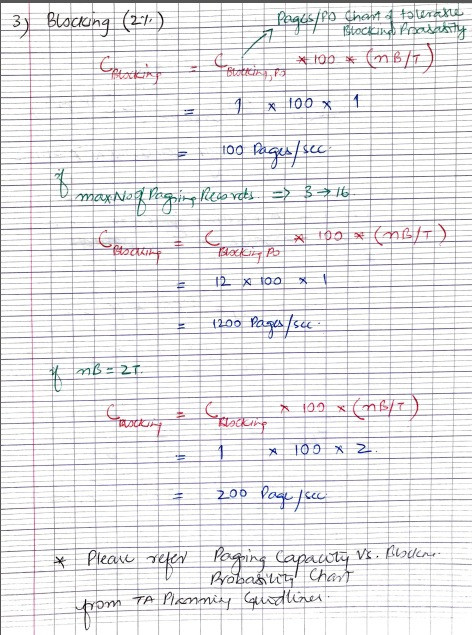 3) Blocking (2%)
Pages/PO Chart & tolerable
Blocking Probability
C Blocking = C Blocking, PO * 100 * (nB/T)
= 1 * 100 * 1
= 100 Pages/sec
if maxNo of Paging Records => 3 → 16.
C Blocking = C Blocking PO * 100 * (nB/T)
= 12 * 100 * 1
= 1200 Pages/sec.
if nB = 2T.
C Blocking = C Blocking * 100 * (nB/T)
= 1 * 100 * 2.
= 200 Page/sec
* Please refer Paging Capacity Vs.
Probability Chart
from TA Planning Guidlines.